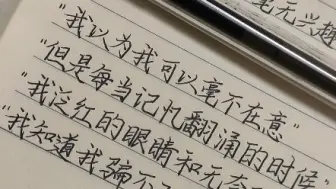 无兴趣
"我以为我可以毫不在意"
"但是每当记忆翻涌的时候
"我泛红的眼睛和无
"我知道我骗不